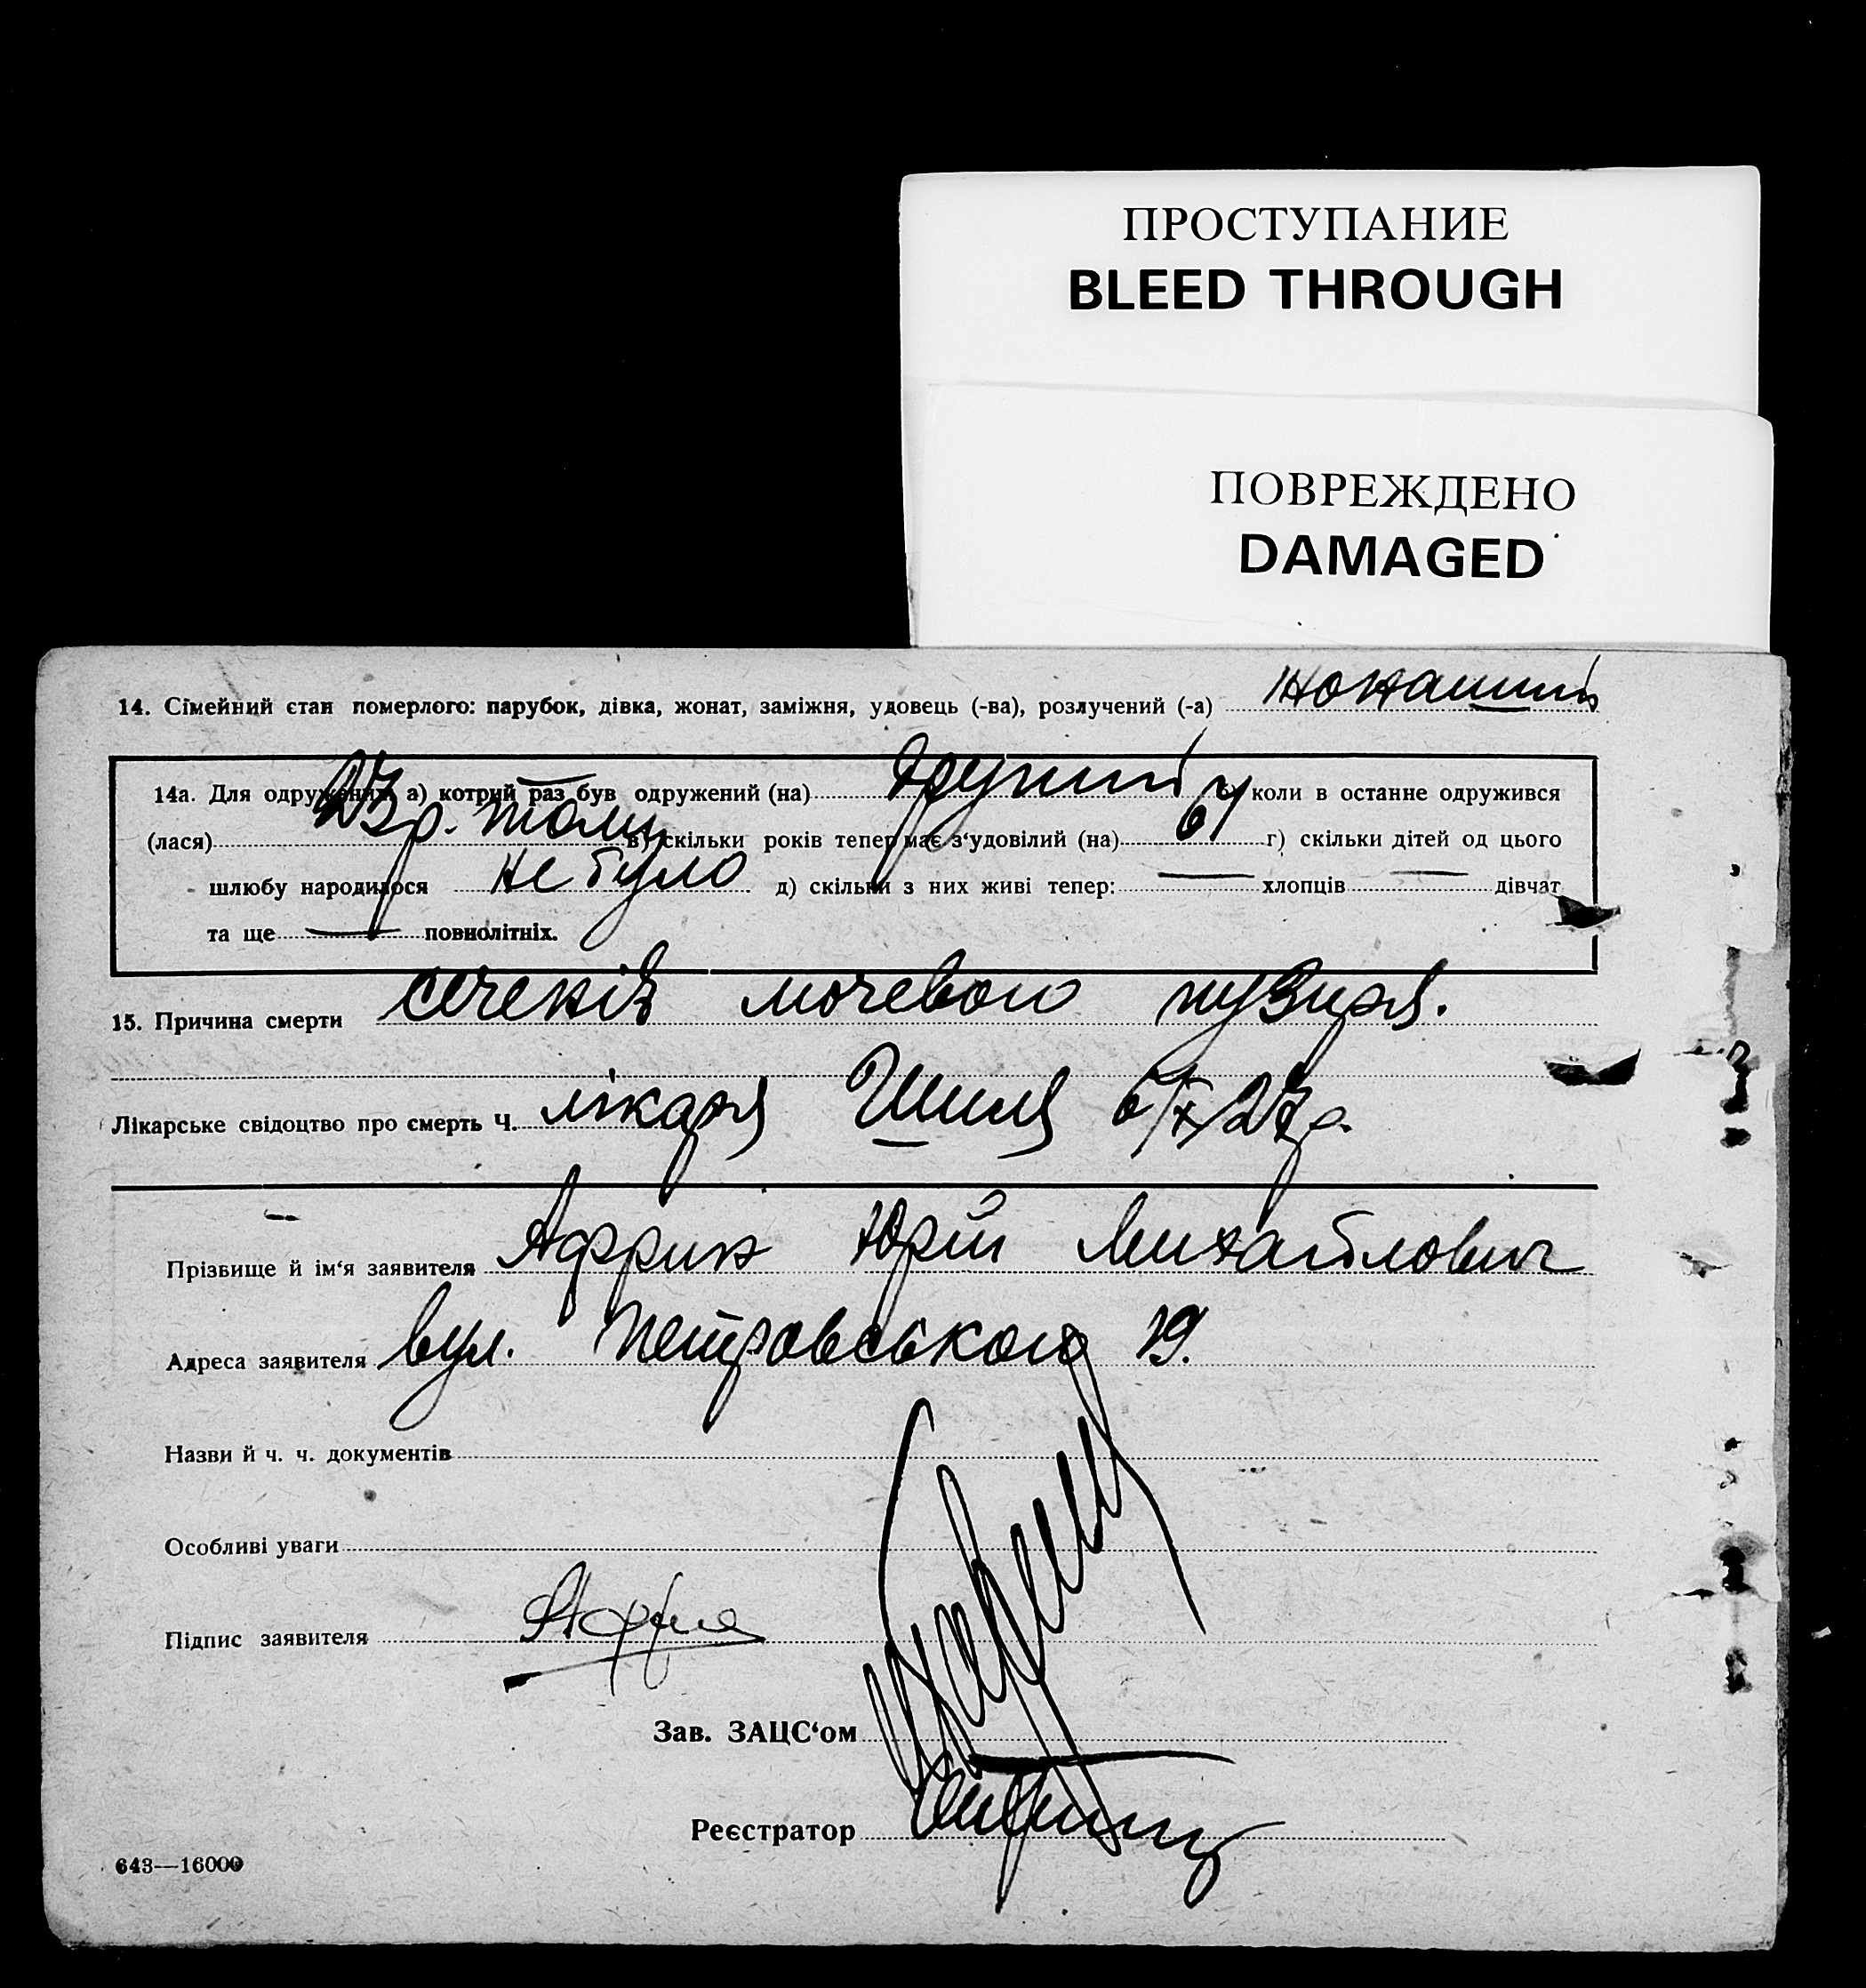 ПРОСТУПАНИЕ
BLEED THROUGH
ПОВРЕЖДЕНО
DAMAGED
14. Сімейний стан померлого: парубок, дівка, жонат, заміжня, удовець (-ва), розлучений (-а) жонатий
14а. Для одружених а) котрий раз був одружений (на) другий б) коли в останне одружився
(лася) 23 р. тому в) скільки років тепер має з‘удовілий (на) 64 г) скільки дітей од цього
шлюбу народилося не було д) скільки з них живі тепер: — хлопців — дівчат
та ще — повнолітніх.
15. Причина смерти мочевого пузиря.
Лікарське свідоцтво про смерть Ч. лікаря 6/X 27 р.
Прізвище й ім‘я заявителя Африк Юрій Михайлович
Адреса заявителя вул. Петровського 19.
Назви й ч. ч. документів
Особливі уваги
Підпис заявителя
Зав. ЗАЦС‘ом
Реєстратор
643—16000